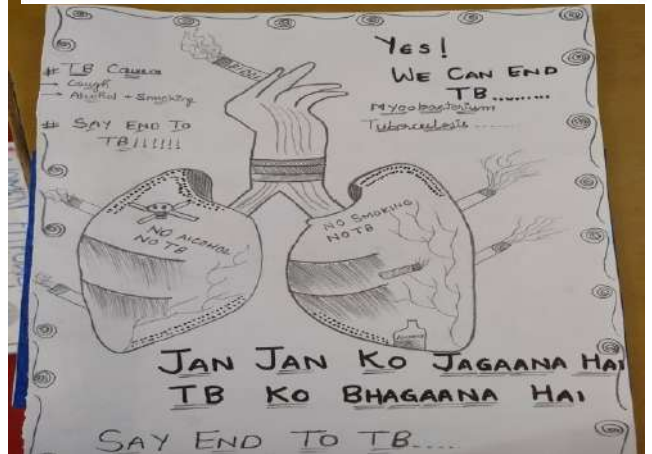 # TB Causes
→ Cough
→ Alcohol + Smoking
# SAY END TO
TB!!!!!!
YES!
WE CAN END
TB.........
Mycobacterium
Tuberculosis.......
NO ALCOHOL
NO TB
NO SMOKING
NO TB
JAN JAN KO JAGAANA HAI
TB KO BHAGAANA HAI
SAY END TO TB....